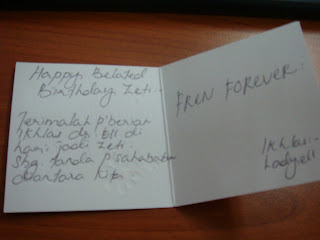 Happy Belated
Birthday Zeti..
Terimalah p'berian
Ikhlas dr Ell di
hari jadi Zeti.
Sbg tanda p'sahabatan
diantara kita
FREN FOREVER..
Ikhlas..